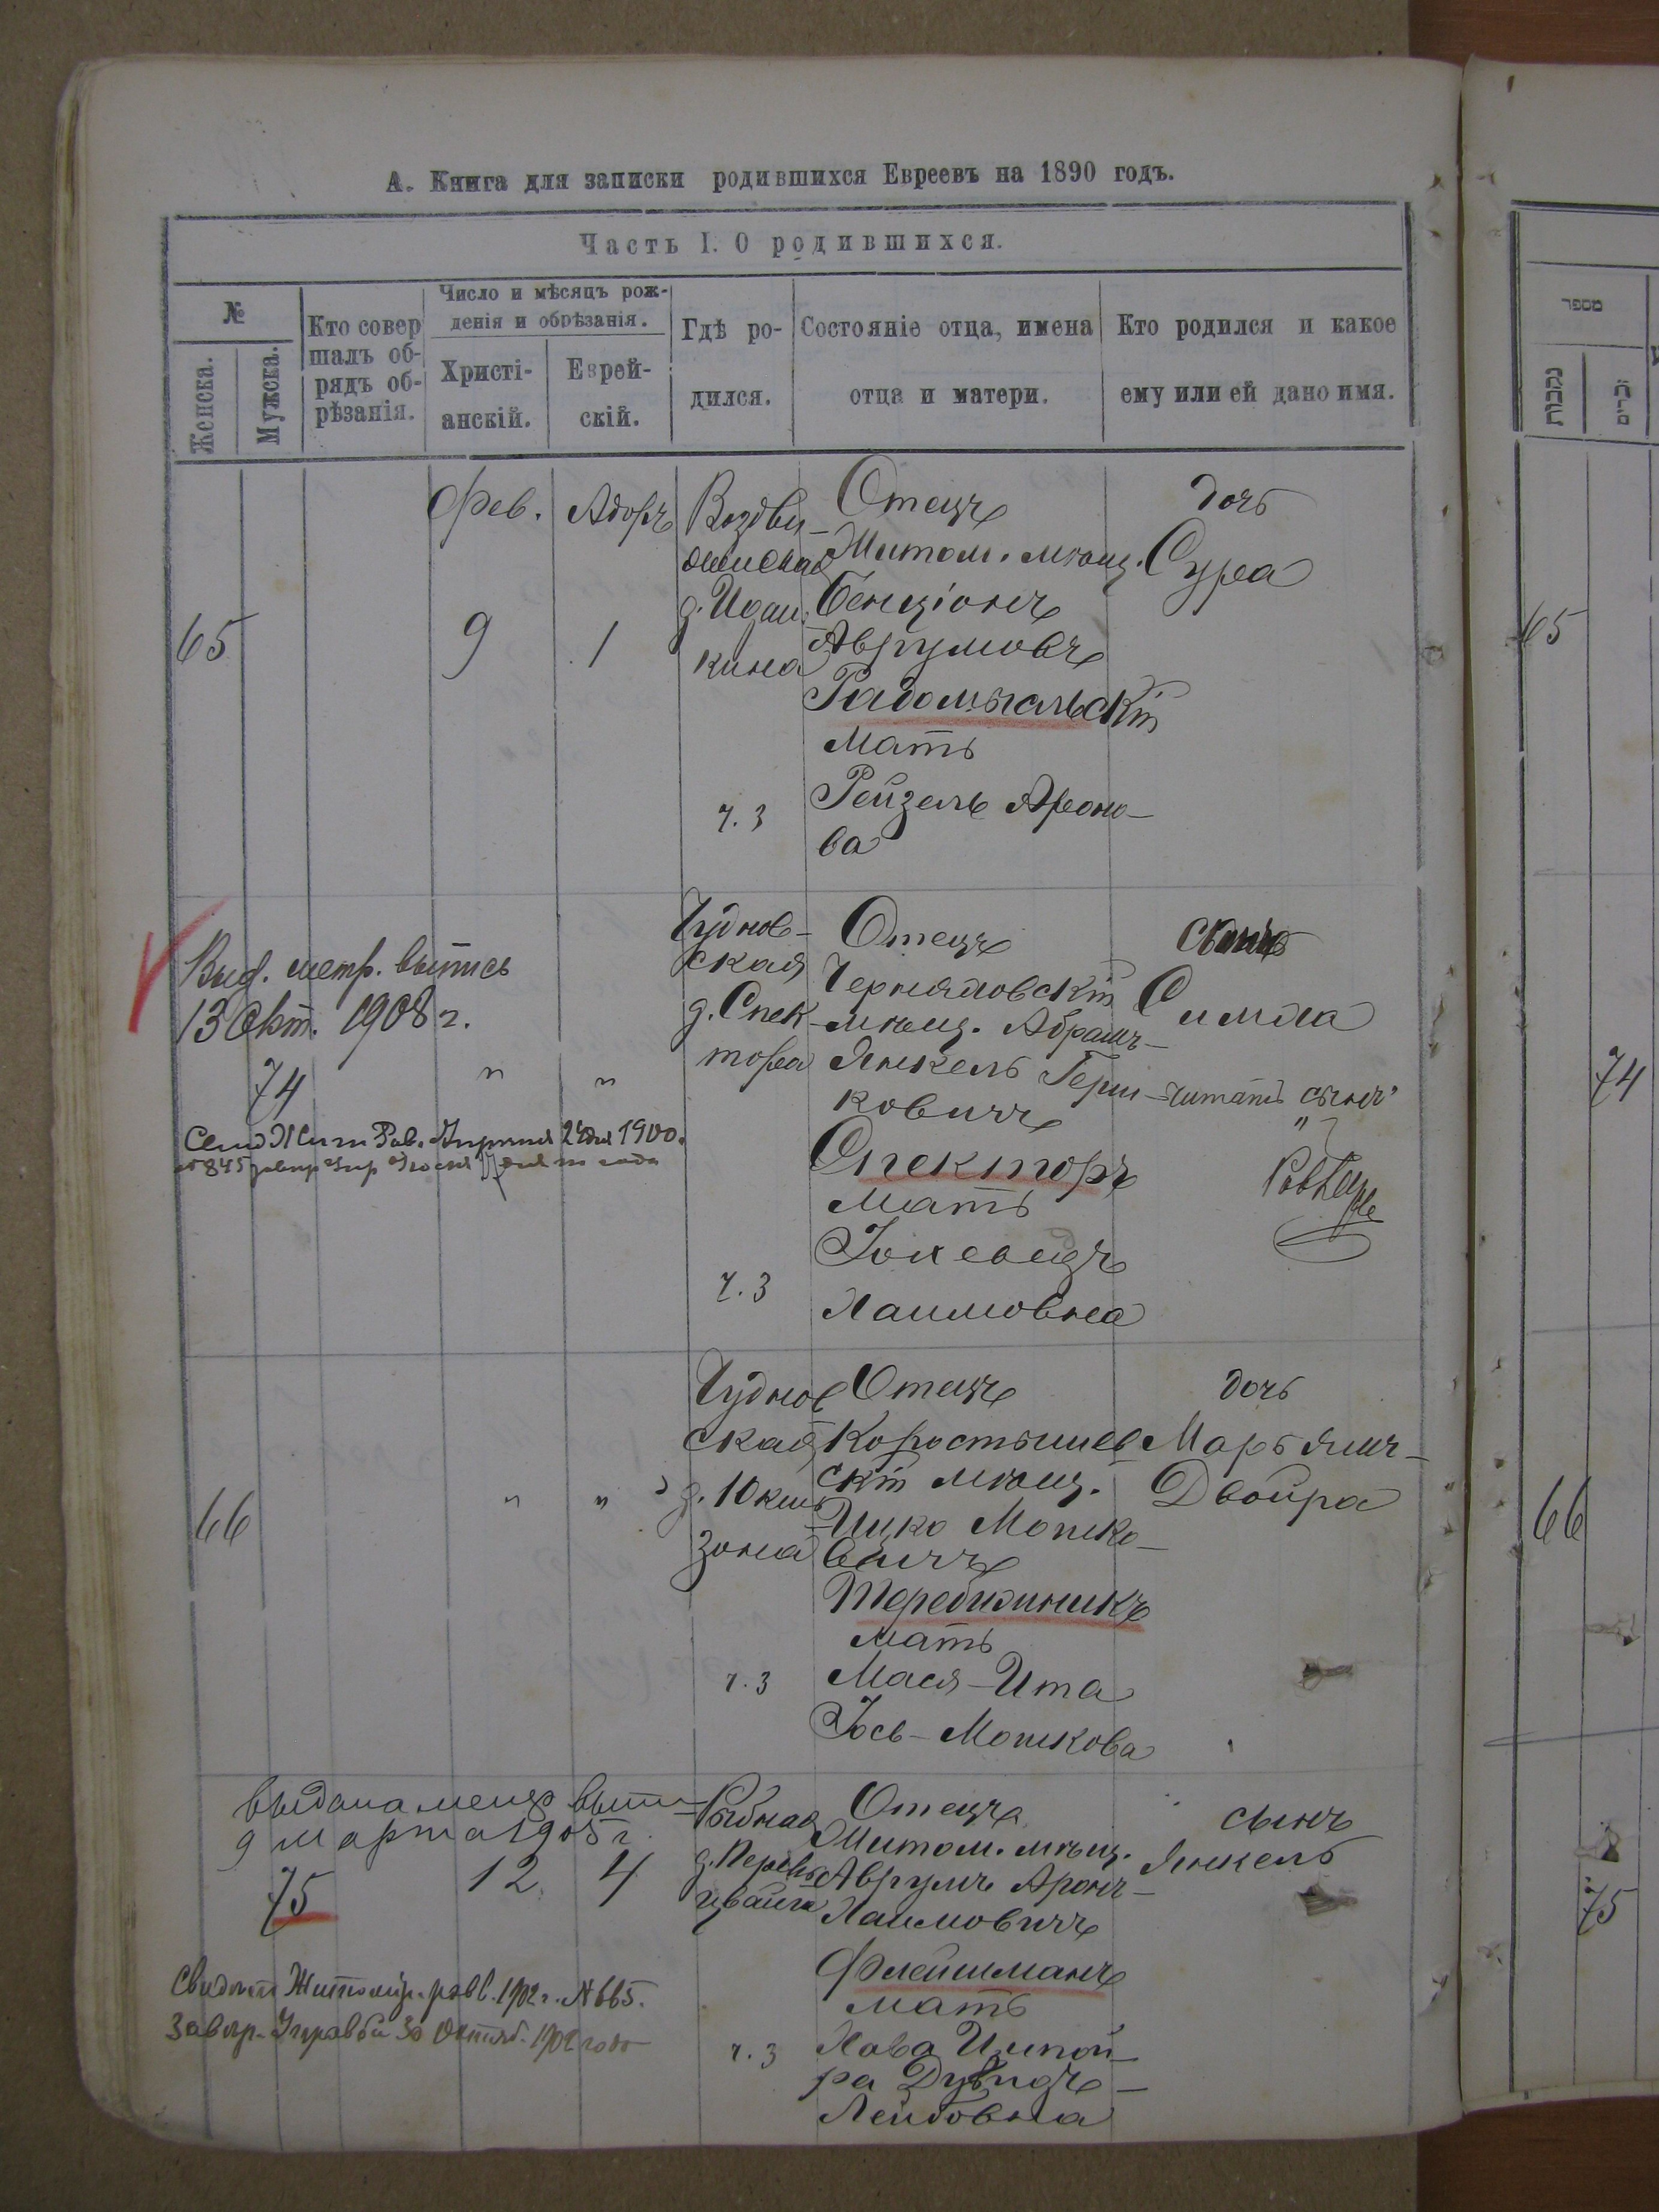 А. Книга для записки родившихся Евреевъ на 1890 годъ.
Часть I. О родившихся.
№
Женска.
Мужска.
Кто совер
шалъ об-
рядъ об-
рѣзанія.
Число и мѣсяцъ рож-
денія и обрѣзанія.
Христі-
анскій.
Еврей-
скій.
Гдѣ ро-
дился.
Состояніе отца, имена
отца и матери.
Кто родился и какое
ему или ей дано имя.
65
Фев.
9
Адоръ
1
Воздви-
женская
кина
ч. 3
Отецъ
Житом. мѣщ.
Бенціонъ
Аврумовъ
Радомысльскій
Мать
Рейзель Ароно-
ва
дочь
Сура
Выд. метр. выпись
13 Окт. 1908 г.
74
"
"
Чуднов-
ская
д. Спек-
тора
ч. 3
Отецъ
Черняховскій
мѣщ. Абрамъ-
Янкель Герш-
ковичъ
Спекторъ
Мать
Хаимовна
Симха
читать сынъ
66
"
"
Чуднов
ская
д. Юкель
зона
ч. 3
Отецъ
Коростышев-
скій мѣщ.
Ицко Мошко-
вичъ
Теребижникъ
мать
Мася-Ита
Іось-Мошкова
дочь
Марьямъ-
Двойра
выдана метр выпи
9 марта 1905 г.
75
12
4
Рыбная
ч. 3
Отецъ
Житом. мѣщ.
Аврумъ Аронъ-
Хаимовичъ
Флейшманъ
мать
Хава Ципой-
ра Дувидъ-
Лейбовна
сынъ
Янкель
Свидѣт Житомір. рав. 1902 г. № 665.
מספר
נקבות
זכרים
65
74
66
75